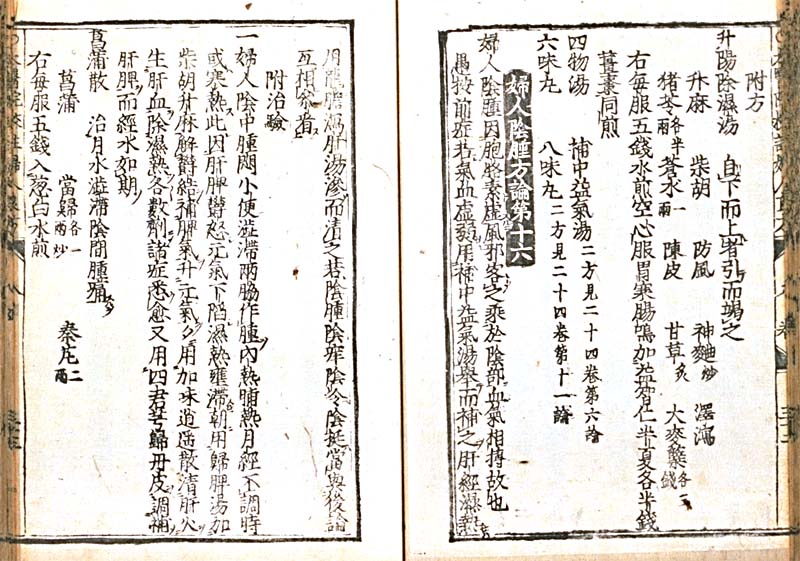 附方
升陽除濕湯　自下而上者引而竭之
升麻　柴胡　防風　神麯炒　澤瀉
猪苓各半兩　蒼朮一兩　陳皮　甘草炙　大麥蘖各一錢
右每服五錢水煎空心服胃寒腸鳴加益智仁半夏各半錢
薑棗同煎
四物湯　補中益氣湯二方見二十四卷第六論
六味丸　八味丸二方見二十四卷第十一論
婦人陰腫方論第十六
婦人陰腫因胞絡素虛風邪客之乘於陰部血氣相搏故也
愚按前症若氣血虛弱用補中益氣湯舉而補之肝經濕熱
用龍膽瀉肝湯滲而清之若陰腫陰痒陰冷陰挺當與後論
互相參看
附治驗
一婦人陰中腫悶小便澁滯兩脇作腫內熱晡熱月經不調時
或寒熱此因肝脾鬱怒元氣下陷濕熱壅滯朝用歸脾湯加
柴胡升麻解鬱結補脾氣升元氣夕用加味逍遥散清肝火
生肝血除濕熱各數劑諸症悉愈又用四君芎歸丹皮調補
肝脾而經水如期
菖蒲散　治月水澁滯陰間腫痛
菖蒲　當歸各一兩炒　秦艽二兩
右每服五錢入葱白水煎